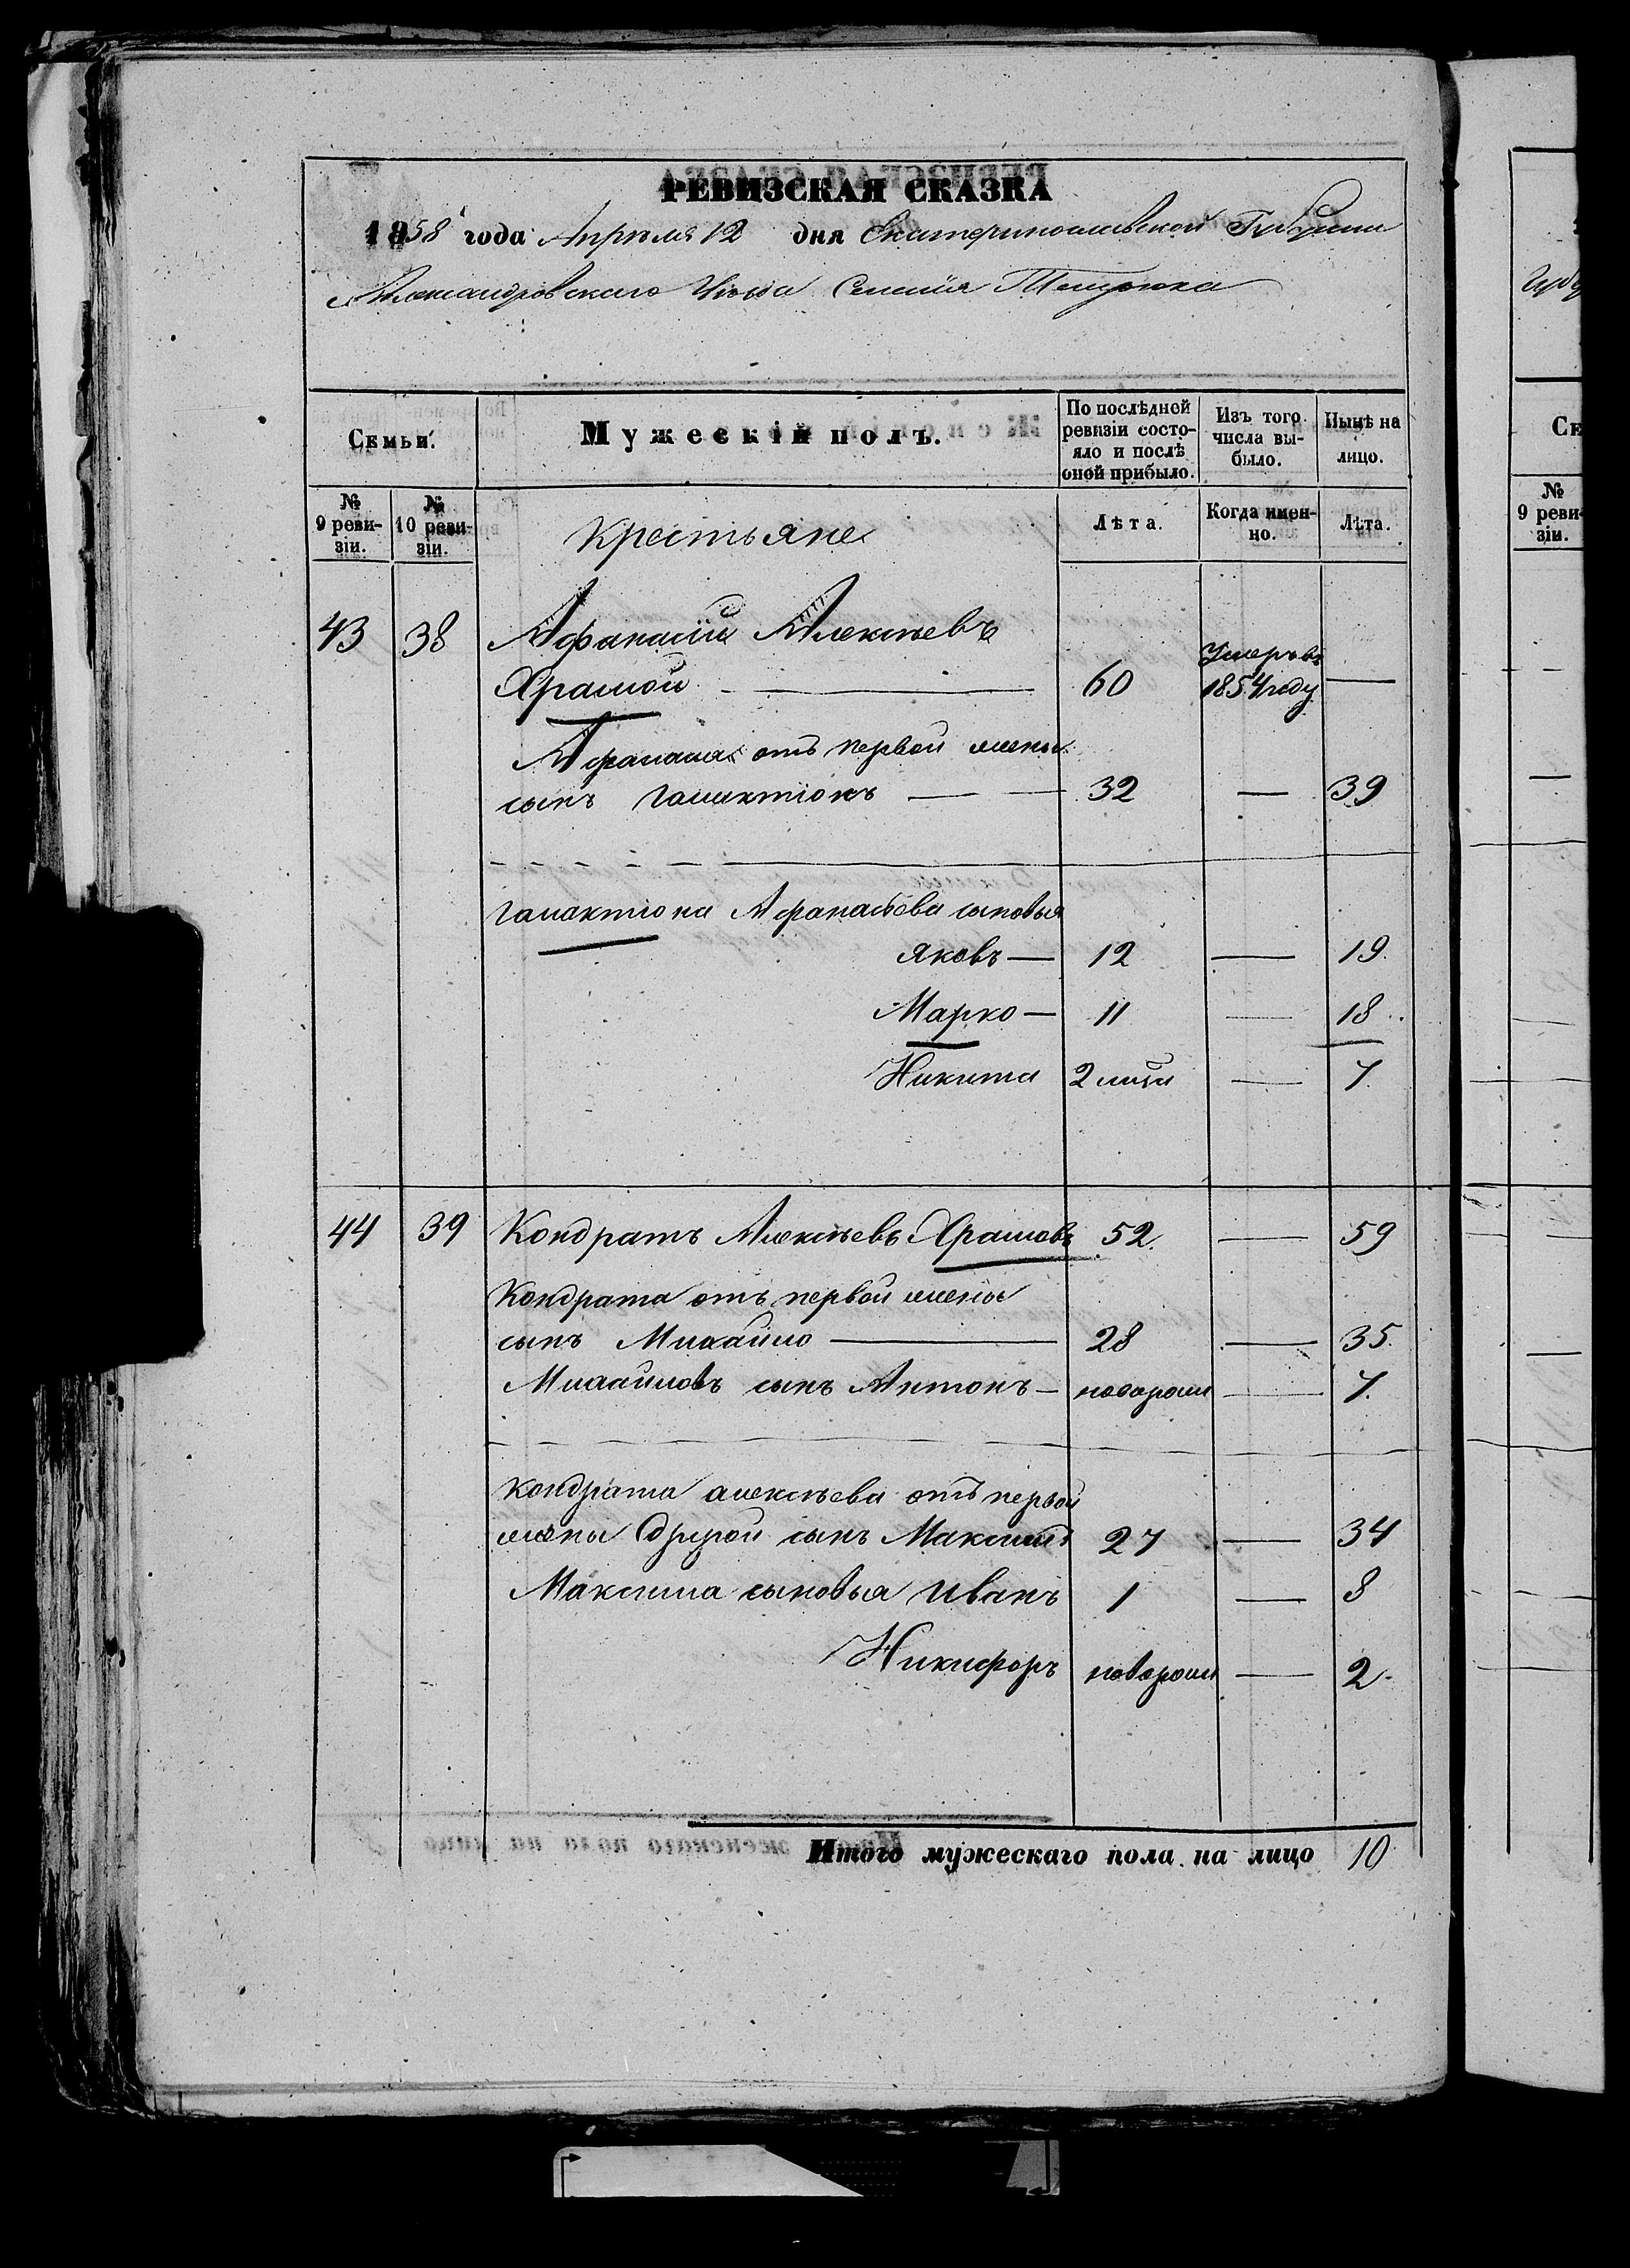 РЕВИЗСКАЯ СКАЗКА
1858 года Апрѣля 12 дня Екатеринославской Губерніи
Александровскаго Уѣзда Селенія
Семьи. Мужескій полъ. По послѣдней ревизіи состояло и послѣ оной прибыло. Изъ того числа выбыло. Нынѣ на лицо.
№ 9 ревизіи. № 10 ревизіи. Крестьяне Лѣта. Когда именно. Лѣта.
43 38 Афанасій Алексѣевъ
Храмой — 60 Умеръ въ 1854 году —
Афанасія отъ первой жены
сынъ Галактіонъ — 32 — 39
Галактіона Афанасьева сыновья
Яковъ — 12 — 19
Марко — 11 — 18
Никита 2 — 7
44 39 Кондратъ Алексѣевъ Храмовъ 52 — 59
Кондрата отъ первой жены
сынъ Михайло — 28 — 35
Михайловъ сынъ Антонъ — новорож — 7
Кондрата алексѣева отъ первой
жены другой сынъ Максимъ 27 — 34
Максима сыновья Иванъ 1 — 8
Никифоръ новорож — 2
Итого мужескаго пола на лицо 10
Се
№
9 реви-
зіи.